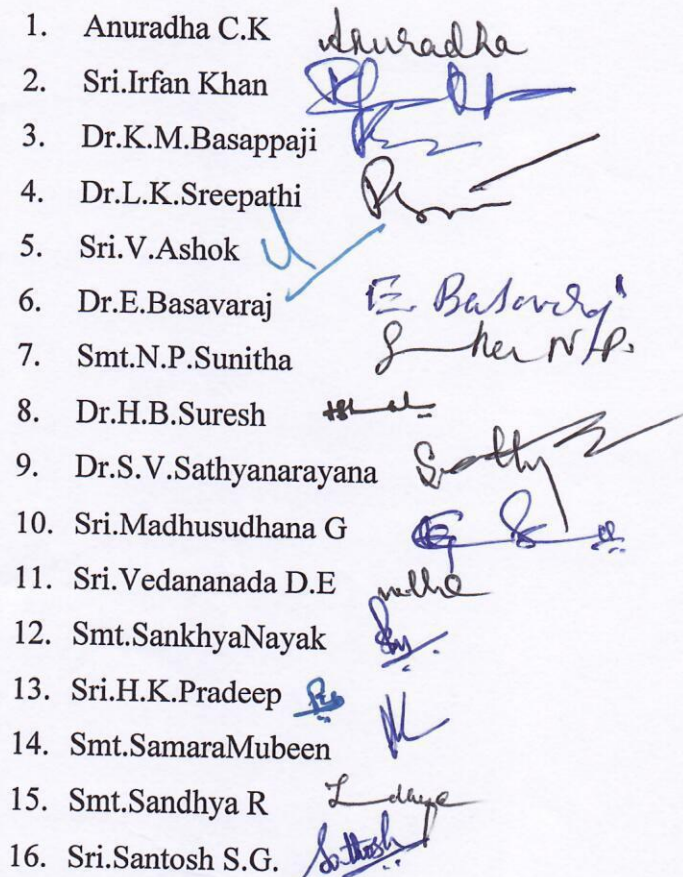 1. Anuradha C.K Anuradha
2. Sri.Irfan Khan
3. Dr.K.M.Basappaji
4. Dr.L.K.Sreepathi
5. Sri.V.Ashok
6. Dr.E.Basavaraj E. Basavaraj
7. Smt.N.P.Sunitha N.P.
8. Dr.H.B.Suresh
9. Dr.S.V.Sathyanarayana
10. Sri.Madhusudhana G
11. Sri.Vedananada D.E
12. Smt.SankhyaNayak
13. Sri.H.K.Pradeep
14. Smt.SamaraMubeen
15. Smt.Sandhya R
16. Sri.Santosh S.G. Santhosh